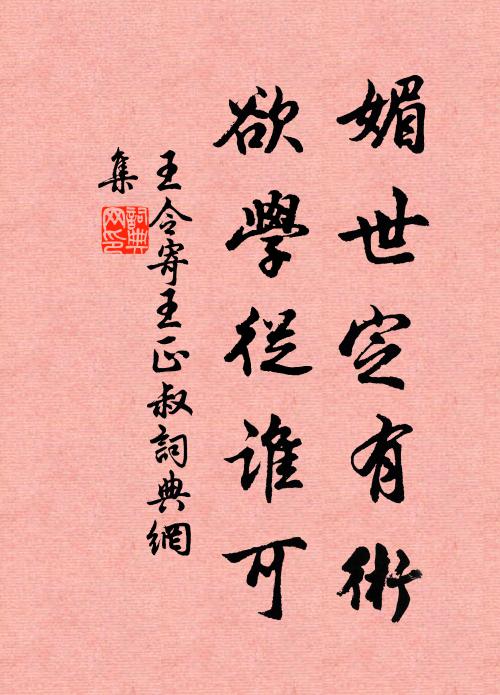 媚世定有術
欲學從誰可
王令寄王正叔詞典網
集
詞典
網印